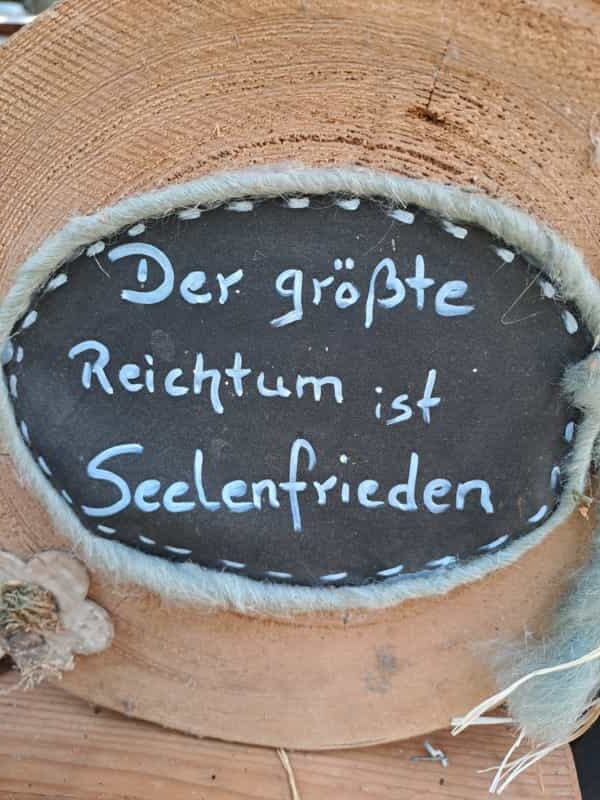 Der größte
Reichtum ist
Seelenfrieden